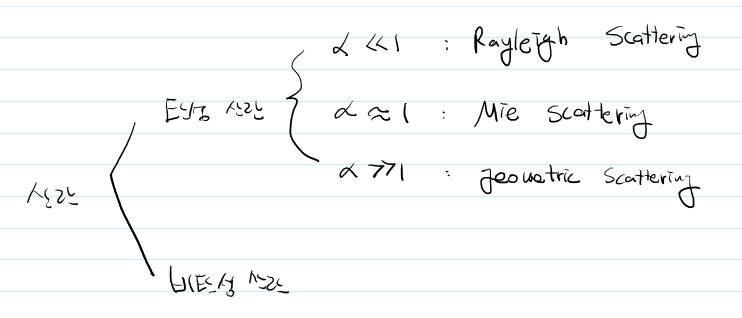 α ≪ 1 : Rayleigh Scattering
탄성 산란
α ≈ 1 : Mie scattering
α ≫ 1 : geometric scattering
산란
비탄성 산란